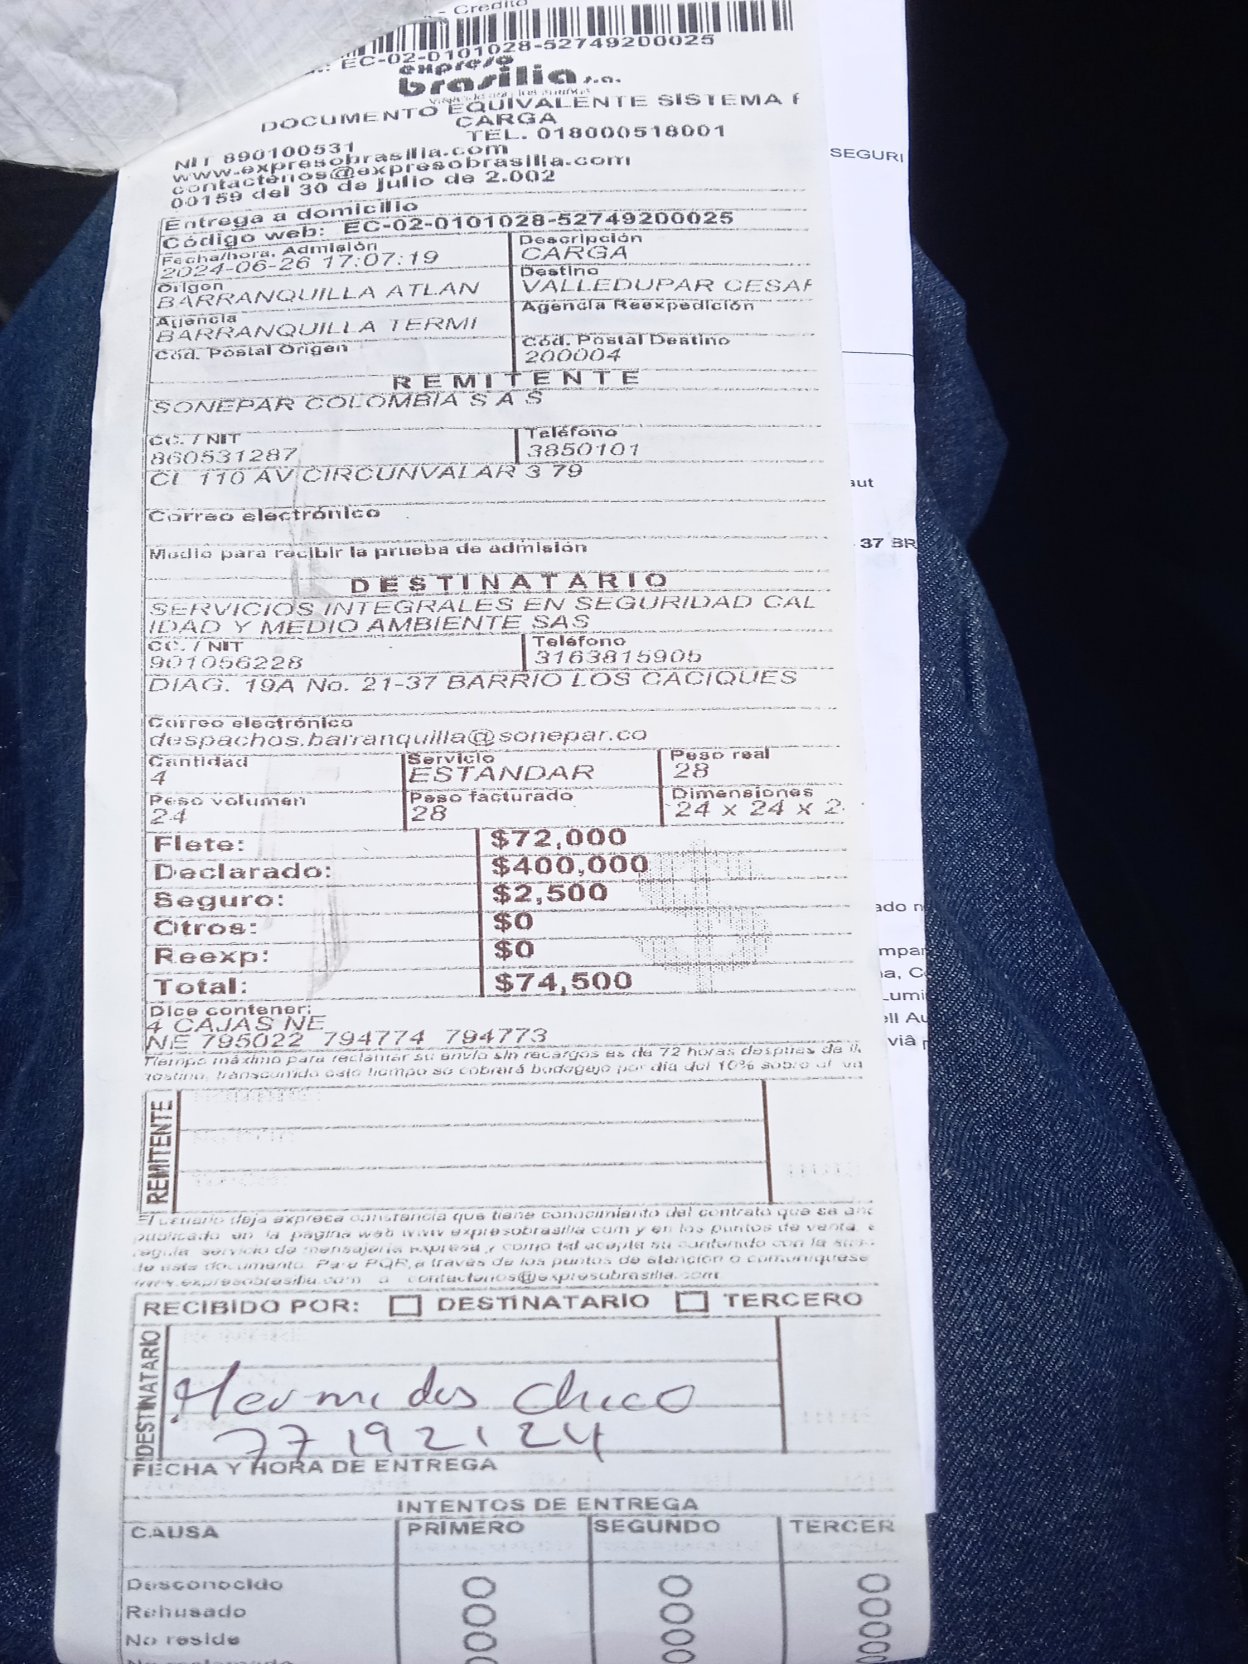 - Credito
EC-02-0101028-52749200025
expreso
brasilia s.a.
DOCUMENTO EQUIVALENTE SISTEMA
CARGA
TEL. 018000518001
NIT 890100531
www.expresobrasilia.com
contactenos@expresobrasilia.com
00159 del 30 de julio de 2.002
Entrega a domicilio
Código web: EC-02-0101028-52749200025
Fecha/hora. Admisión
2024-06-26 17:07:19
Descripción
CARGA
Origen
BARRANQUILLA ATLAN
Destino
VALLEDUPAR CESAR
Agencia
BARRANQUILLA TERMI
Agencia Reexpedición
Cód. Postal Origen
Cód. Postal Destino
200004
REMITENTE
SONEPAR COLOMBIA S A S
CC. / NIT
860531287
Teléfono
3850101
CL 110 AV CIRCUNVALAR 3 79
Correo electrónico
Medio para recibir la prueba de admisión
DESTINATARIO
SERVICIOS INTEGRALES EN SEGURIDAD CAL
IDAD Y MEDIO AMBIENTE SAS
CC. / NIT
901056228
Teléfono
3163815905
DIAG. 19A No. 21-37 BARRIO LOS CACIQUES
Correo electrónico
despachos.barranquilla@sonepar.co
Cantidad
4
Servicio
ESTANDAR
Peso real
28
Peso volumen
24
Peso facturado
28
Dimensiones
24 x 24 x 2
Flete: $72,000
Declarado: $400,000
Seguro: $2,500
Otros: $0
Reexp: $0
Total: $74,500
Dice contener:
4 CAJAS NE
NE 795022 794774 794773
Tiempo máximo para reclamar su envío sin recargos es de 72 horas después de
destino, transcurrido este tiempo se cobrará bodegaje por día del 10% sobre el va
REMITENTE
El usuario deja expresa constancia que tiene conocimiento del contrato que se
publicado en la página web www expresobrasilia com y en los puntos de venta,
regula servicio de mensajería expresa y como tal acepta su contenido con la
de este documento. Para PQR a través de los puntos de atención o comuníquese
www.expresobrasilia.com o contactenos@expresobrasilia.com
RECIBIDO POR: DESTINATARIO TERCERO
DESTINATARIO
Hermides Chico
77192124
FECHA Y HORA DE ENTREGA
INTENTOS DE ENTREGA
CAUSA PRIMERO SEGUNDO TERCER
Desconocido
Rehusado
No reside
SEGURI
aut
37 BR
ado n
mpar
Lumi
ll Au